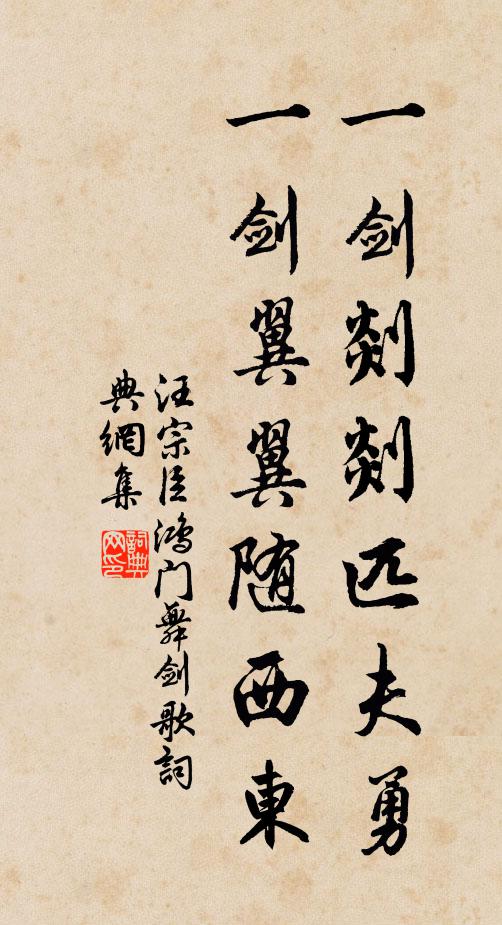 一剑剡剡匹夫勇
一剑翼翼随西東
汪宗臣鴻门舞剑歌詞
典網集
詞典
网印